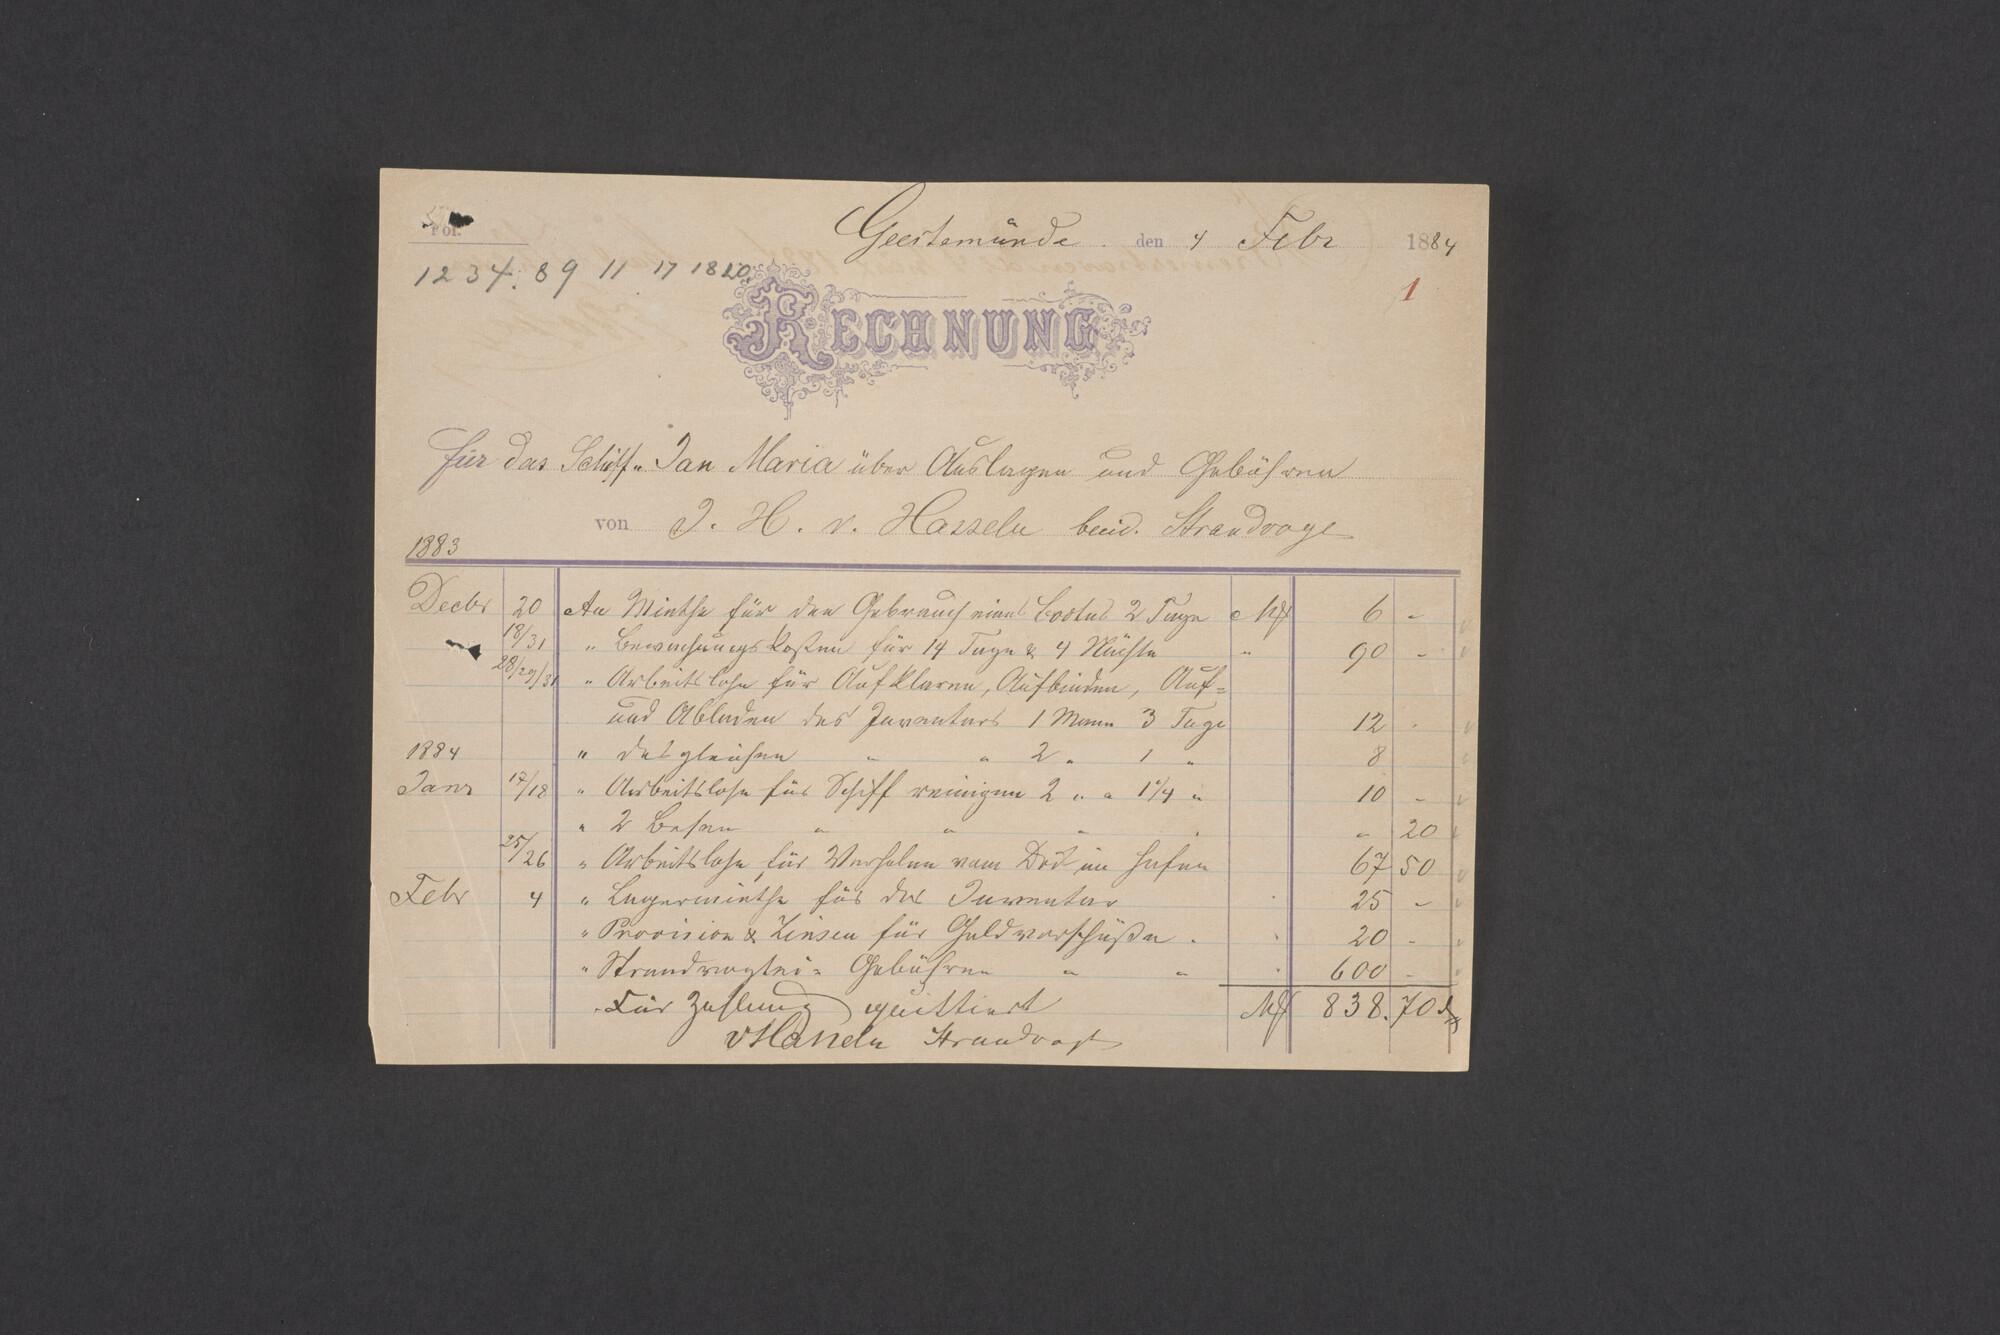 Fol.
Geestemünde. den 4 Febr 1884
1 2 3 4. 8 9 11 17 18 20.
1
RECHNUNG
für das Schiff „Jan Maria über Auslagen und Gebühren
von J. H. v. Hasseln beeid. Strandvogt
1883
Decbr 20 An Miethe für den Gebrauch eines Bootes 2 Tage M 6 -
18/31 " Bewachungskosten für 14 Tage & 4 Nächte " 90 -
28/29/31 " Arbeitslohn für Aufklaren, Aufbinden, Auf=
und Abladen des Inventars 1 Mann 3 Tage 12 -
1884 " desgleichen " " 2 " 1 " 8
Janr 17/18 " Arbeitslohn für Schiff reinigen 2 " a 1 1/4 " 10 -
" 2 Besen " " " " " 20
25/26 " Arbeitslohn für Verholen vom Dock im Hafen 67 50
Febr 4 " Lagermiethe für das Inventar 25 -
" Provision & Zinsen für Geldvorschüße " 20 -
" Strandvogtei= Gebühren " " 600 -
Für Zahlung quittiert M 838.70 d
vHasseln Strandvogt